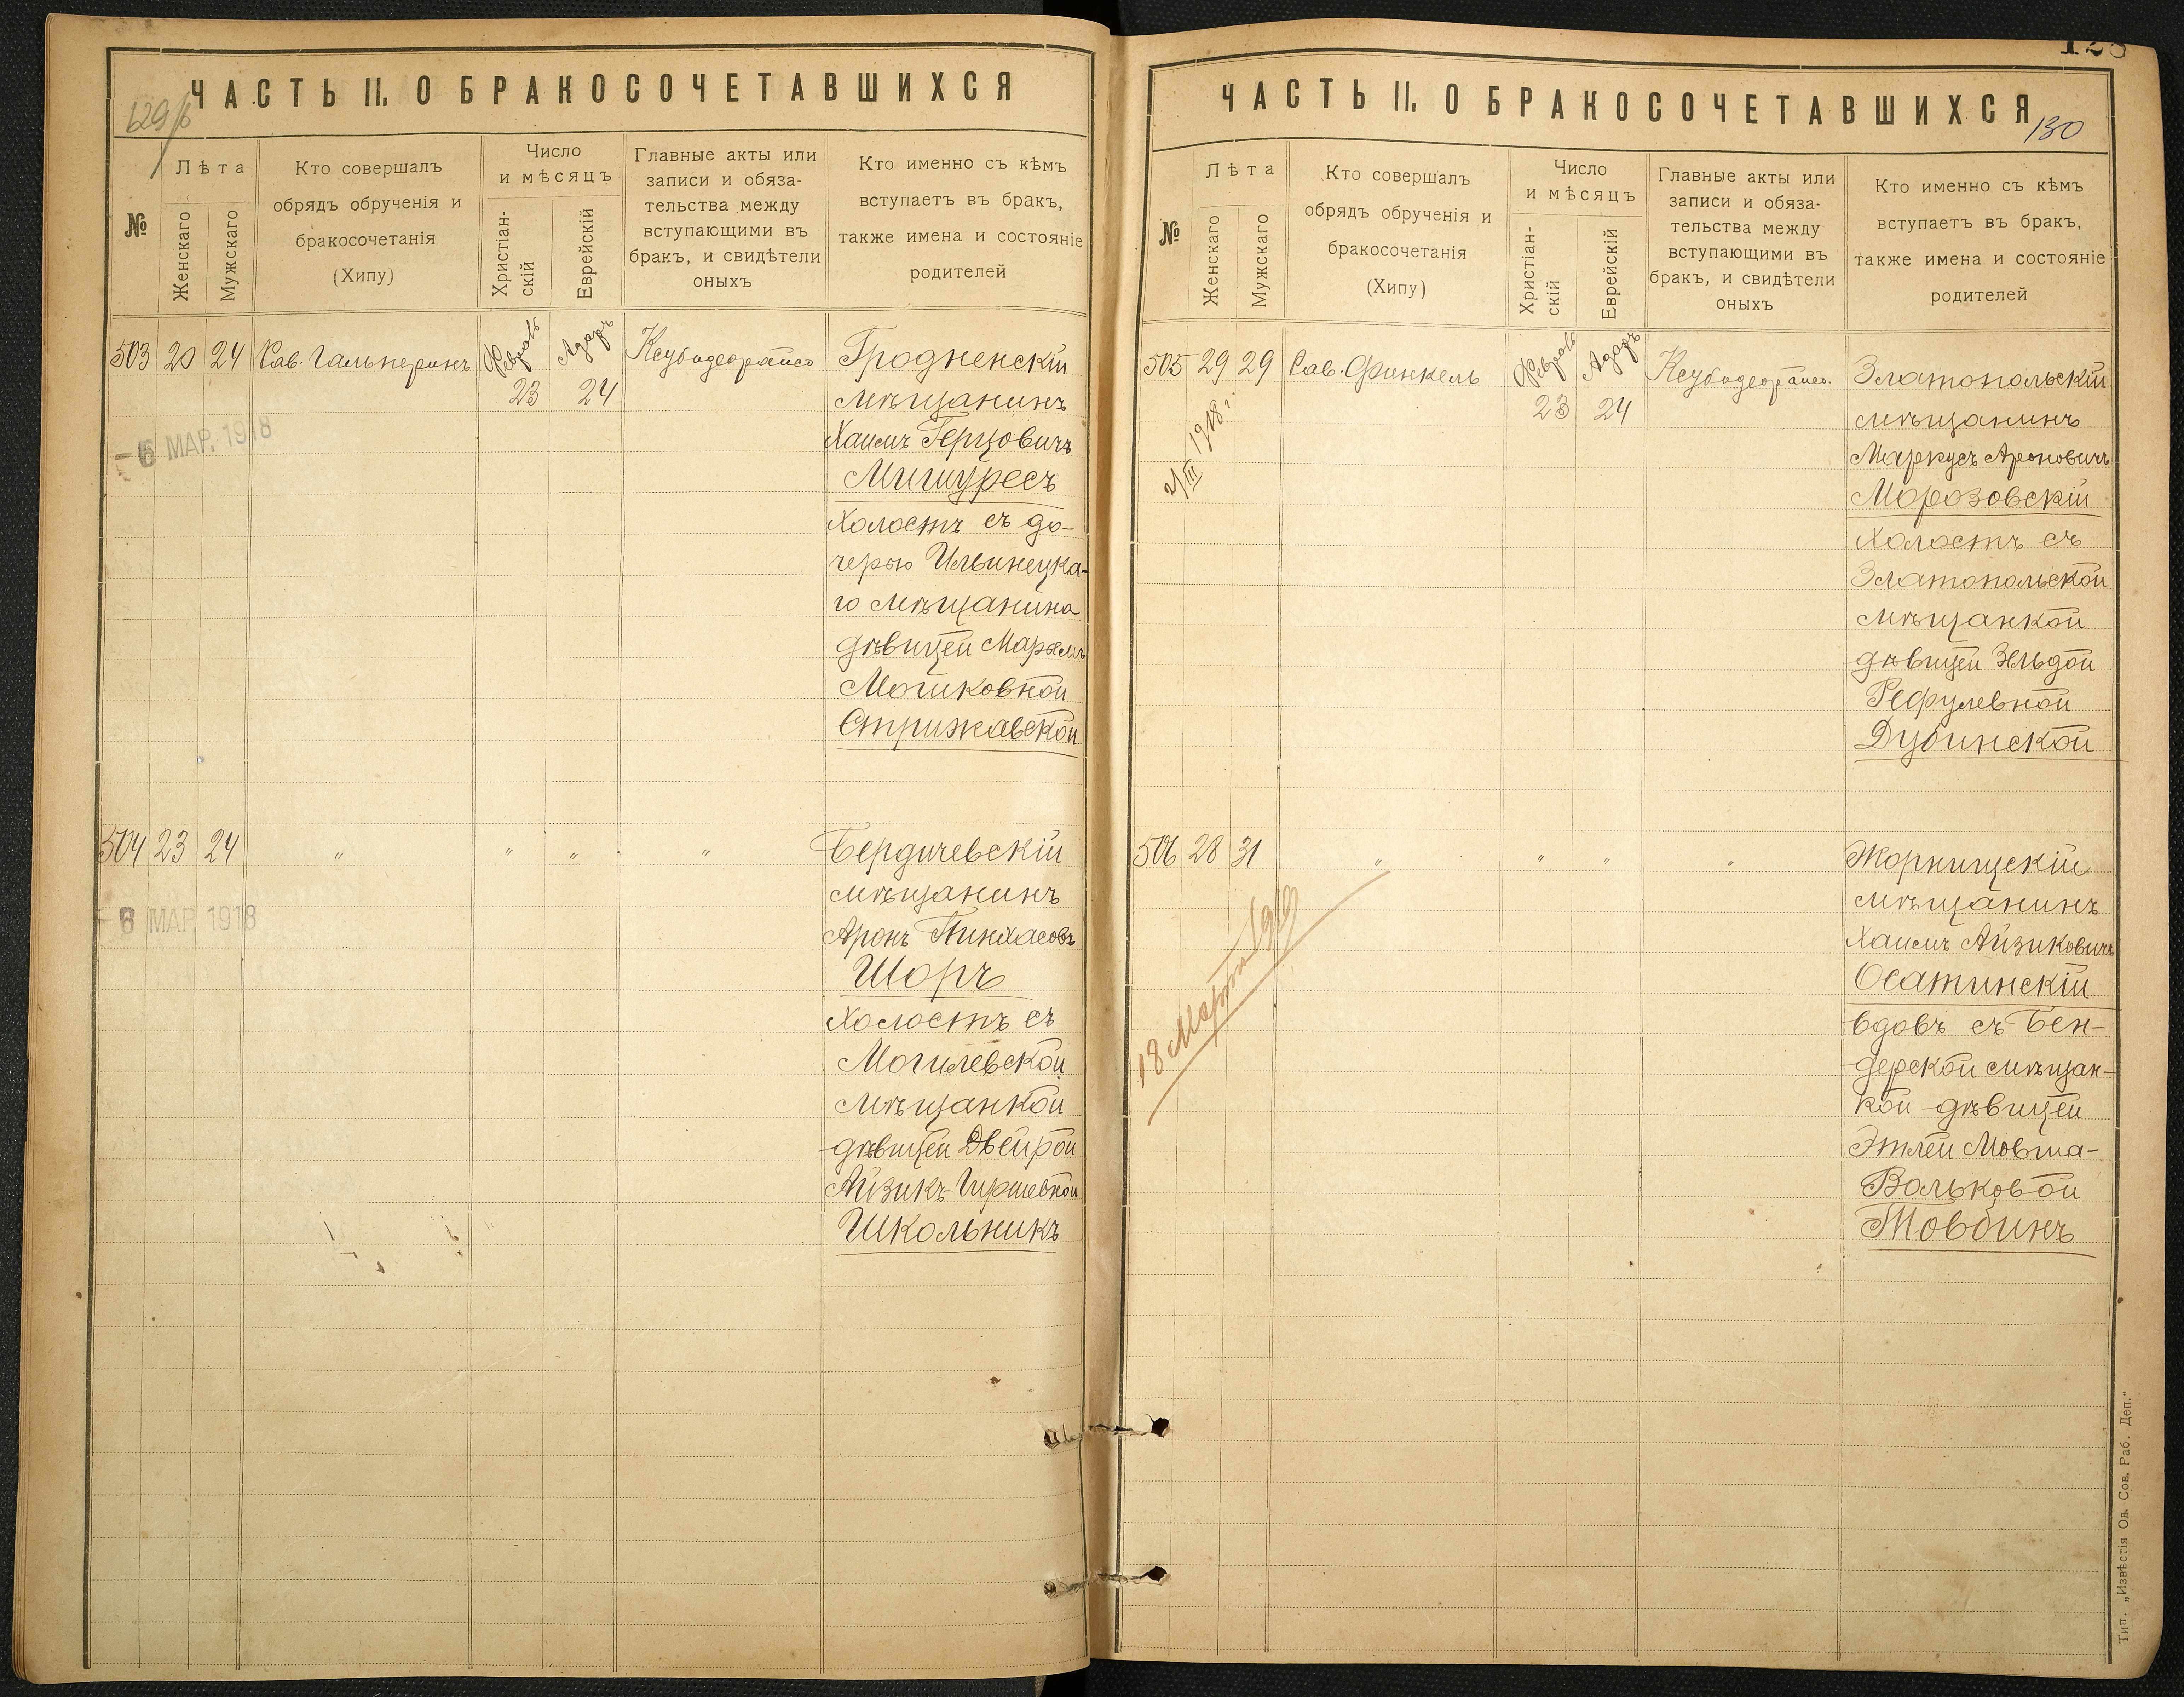 ЧАСТЬ II. О БРАКОСОЧЕТАВШИХСЯ
629/б
№
Лѣта
Женскаго
Мужскаго
Кто совершалъ
обрядъ обрученія и
бракосочетанія
(Хипу)
Число
и мѣсяцъ
Христіан-
скій
Еврейскій
Главные акты или
записи и обяза-
тельства между
вступающими въ
бракъ, и свидѣтели
оныхъ
Кто именно съ кѣмъ
вступаетъ въ бракъ,
также имена и состояніе
родителей
503 20 24 Рав. Гальперинъ
23 Адаръ 24
Гродненскій
мѣщанинъ
Хаимъ Герцовичъ
Мишуресъ
Холостъ съ до-
черью Ильинецка-
го мѣщанина
дѣвицей Марьемъ
Мошковной
Стрижавской
- 6 МАР. 1918
504 23 24 " " " "
Бердичевскій
мѣщанинъ
Аронъ Пинхасовъ
Шоръ
Холостъ съ
Могилевской
мѣщанкой
дѣвицей Двейрой
Айзикъ-Гиршевной
Школьникъ
- 6 МАР. 1918
128
ЧАСТЬ II. О БРАКОСОЧЕТАВШИХСЯ
130
№
Лѣта
Женскаго
Мужскаго
Кто совершалъ
обрядъ обрученія и
бракосочетанія
(Хипу)
Число
и мѣсяцъ
Христіан-
скій
Еврейскій
Главные акты или
записи и обяза-
тельства между
вступающими въ
бракъ, и свидѣтели
оныхъ
Кто именно съ кѣмъ
вступаетъ въ бракъ,
также имена и состояніе
родителей
505 29 29 Рав. Финкель
23 Адаръ 24
Златопольскій
мѣщанинъ
Маркусъ Ароновичъ
Морозовскій
Холостъ съ
Златопольской
мѣщанкой
дѣвицей Эльдой
Рефулевной
Дубинской
2/III 1918 г.
506 28 31 " " " "
Жорнищскій
мѣщанинъ
Хаимъ Айзиковичъ
Осатинскій
вдовъ съ Бен-
дерской мѣщан-
кой дѣвицей
Этлей Мовша-
Вольковой
Товбинъ
18 Марта 1919
Тип. „Извѣстія Од. Сов. Раб. Деп."